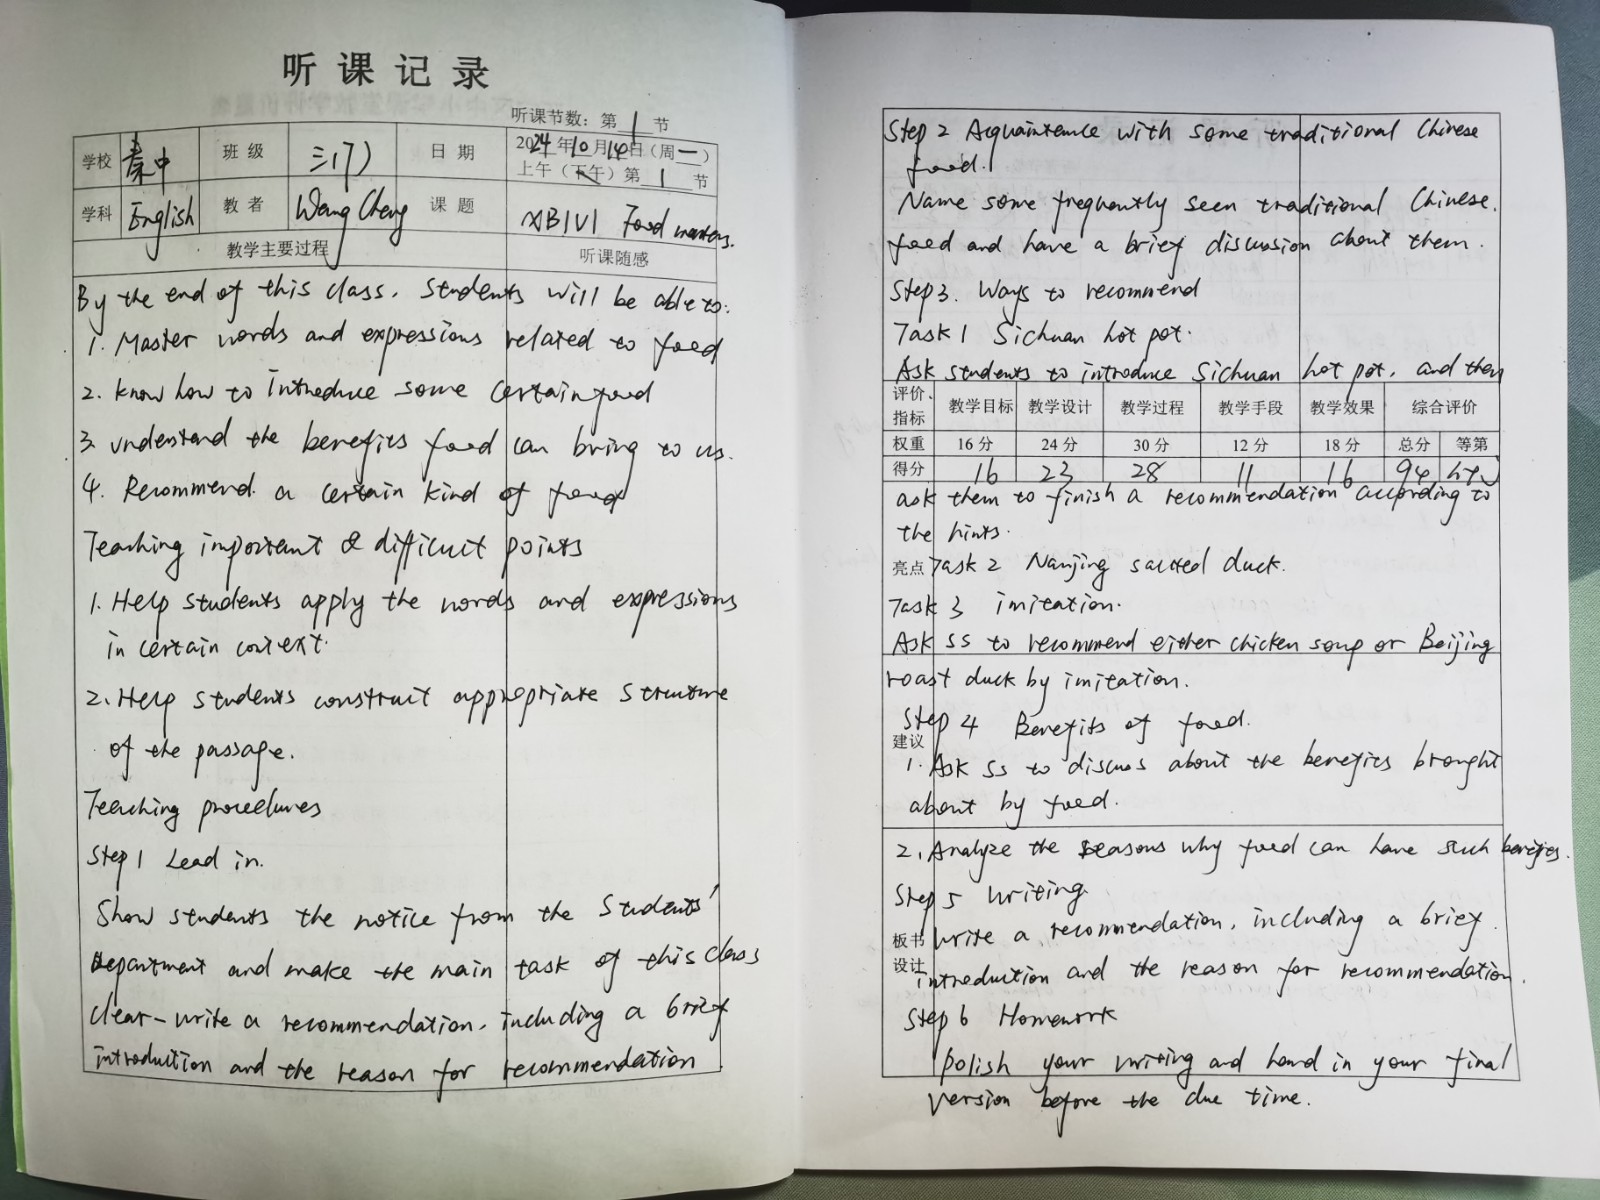 听课记录
听课节数：第 1 节
学校 秦中 班级 三(7) 日期 2024年10月14日（周一）
上午（下午）第 1 节
学科 English 教者 Wang Cheng 课题 XB1U1 Food matters.
教学主要过程 听课随感
By the end of this class, students will be able to:
1. Master words and expressions related to food
2. know how to introduce some certain food
3. understand the benefits food can bring to us.
4. Recommend a certain kind of food
Teaching important & difficult points
1. Help students apply the words and expressions
in certain context.
2. Help students construct appropriate structure
of the passage.
Teaching procedures
Step 1 Lead in.
Show students the notice from the Students'
Department and make the main task of this class
clear - write a recommendation, including a brief
introduction and the reason for recommendation
Step 2 Acquaintence with some traditional Chinese
food.
Name some frequently seen traditional Chinese.
food and have a brief discussion about them.
Step 3. Ways to recommend
Task 1 Sichuan hot pot.
Ask students to introduce Sichuan hot pot, and then
评价、指标 教学目标 教学设计 教学过程 教学手段 教学效果 综合评价
权重 16分 24分 30分 12分 18分 总分 等第
得分 16 23 28 11 16 94
ask them to finish a recommendation according to
the hints.
亮点 Task 2 Nanjing salted duck.
Task 3 imitation.
Ask ss to recommend either chicken soup or Beijing
roast duck by imitation.
Step 4 Benefits of food.
建议
1. Ask ss to discuss about the benefits brought
about by food.
2. Analyze the reasons why food can have such benefits.
Step 5 Writing.
板书设计
write a recommendation, including a brief
introduction and the reason for recommendation.
Step 6 Homework
polish your writing and hand in your final
version before the due time.